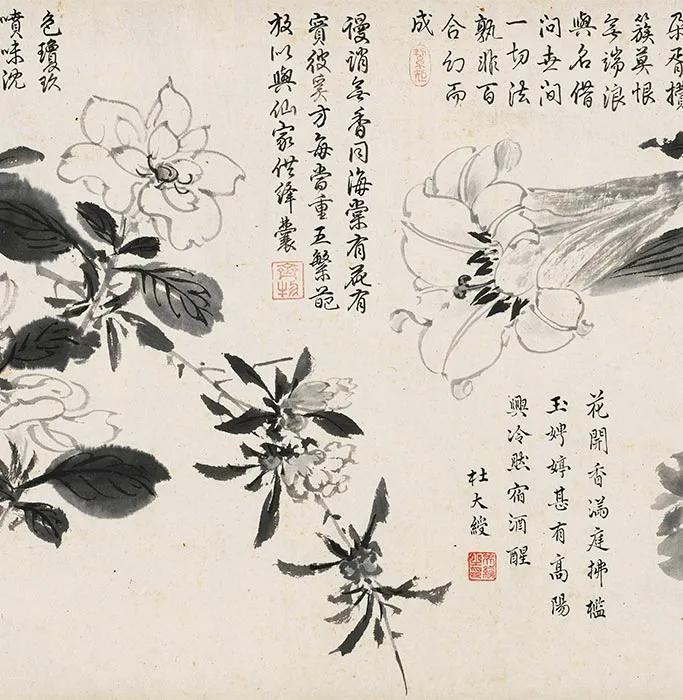 朵胥攢
簇莫恨
無端浪
與名借
問世間
一切法
孰非百
合幻而
成
花開香滿庭拂檻
玉娉婷甚有高陽
興冷然宿酒醒
杜大綬
謾誚無香同海棠有花有
實彼奚方每當重五繁葩
放以與仙家供絳囊
齊物
色瓊玖
噴味沈